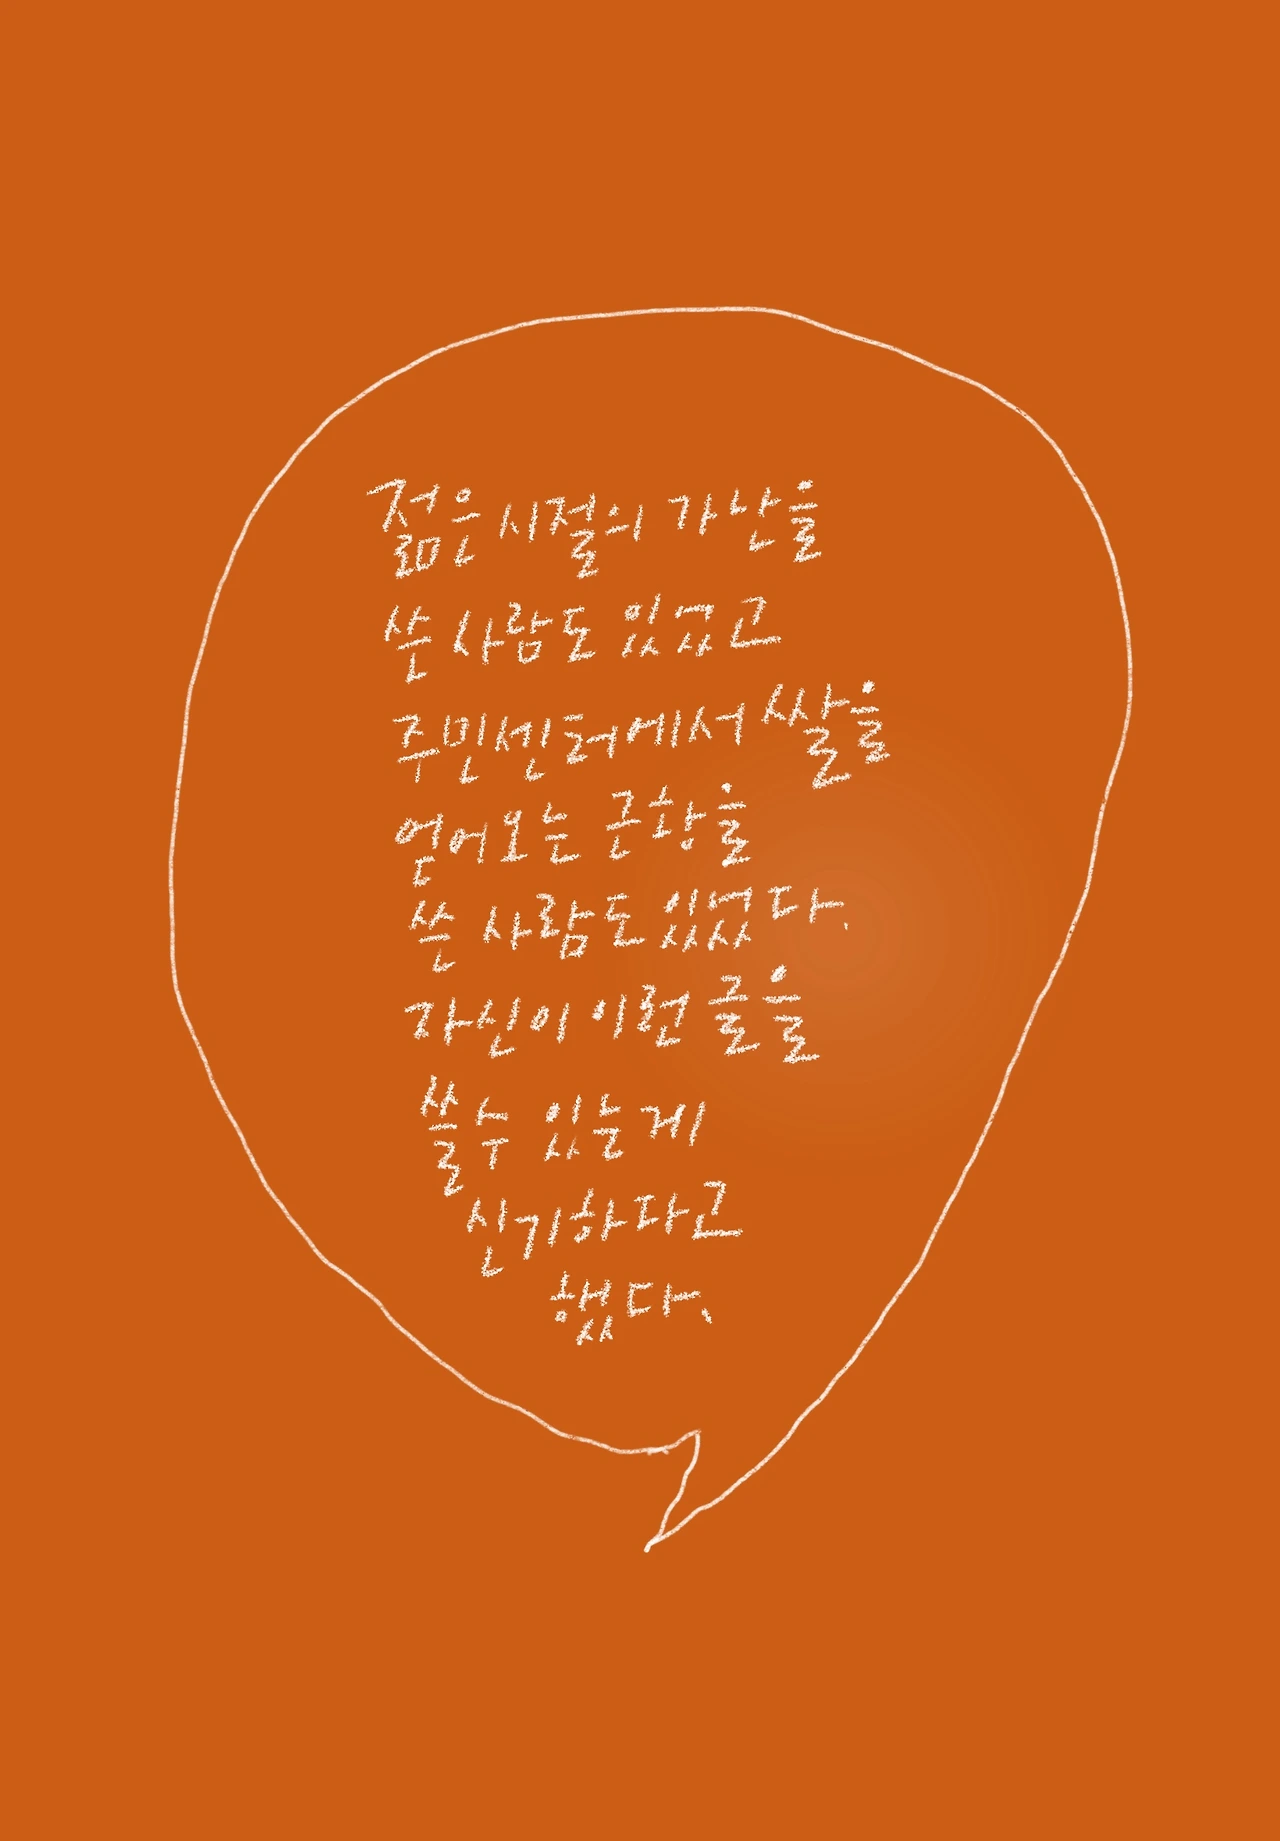 젊은 시절의 가난을
쓴 사람도 있었고
주민센터에서 쌀을
얻어오는 근황을
쓴 사람도 있었다.
자신이 이런 글을
쓸수 있는게
신기하다고
했다.